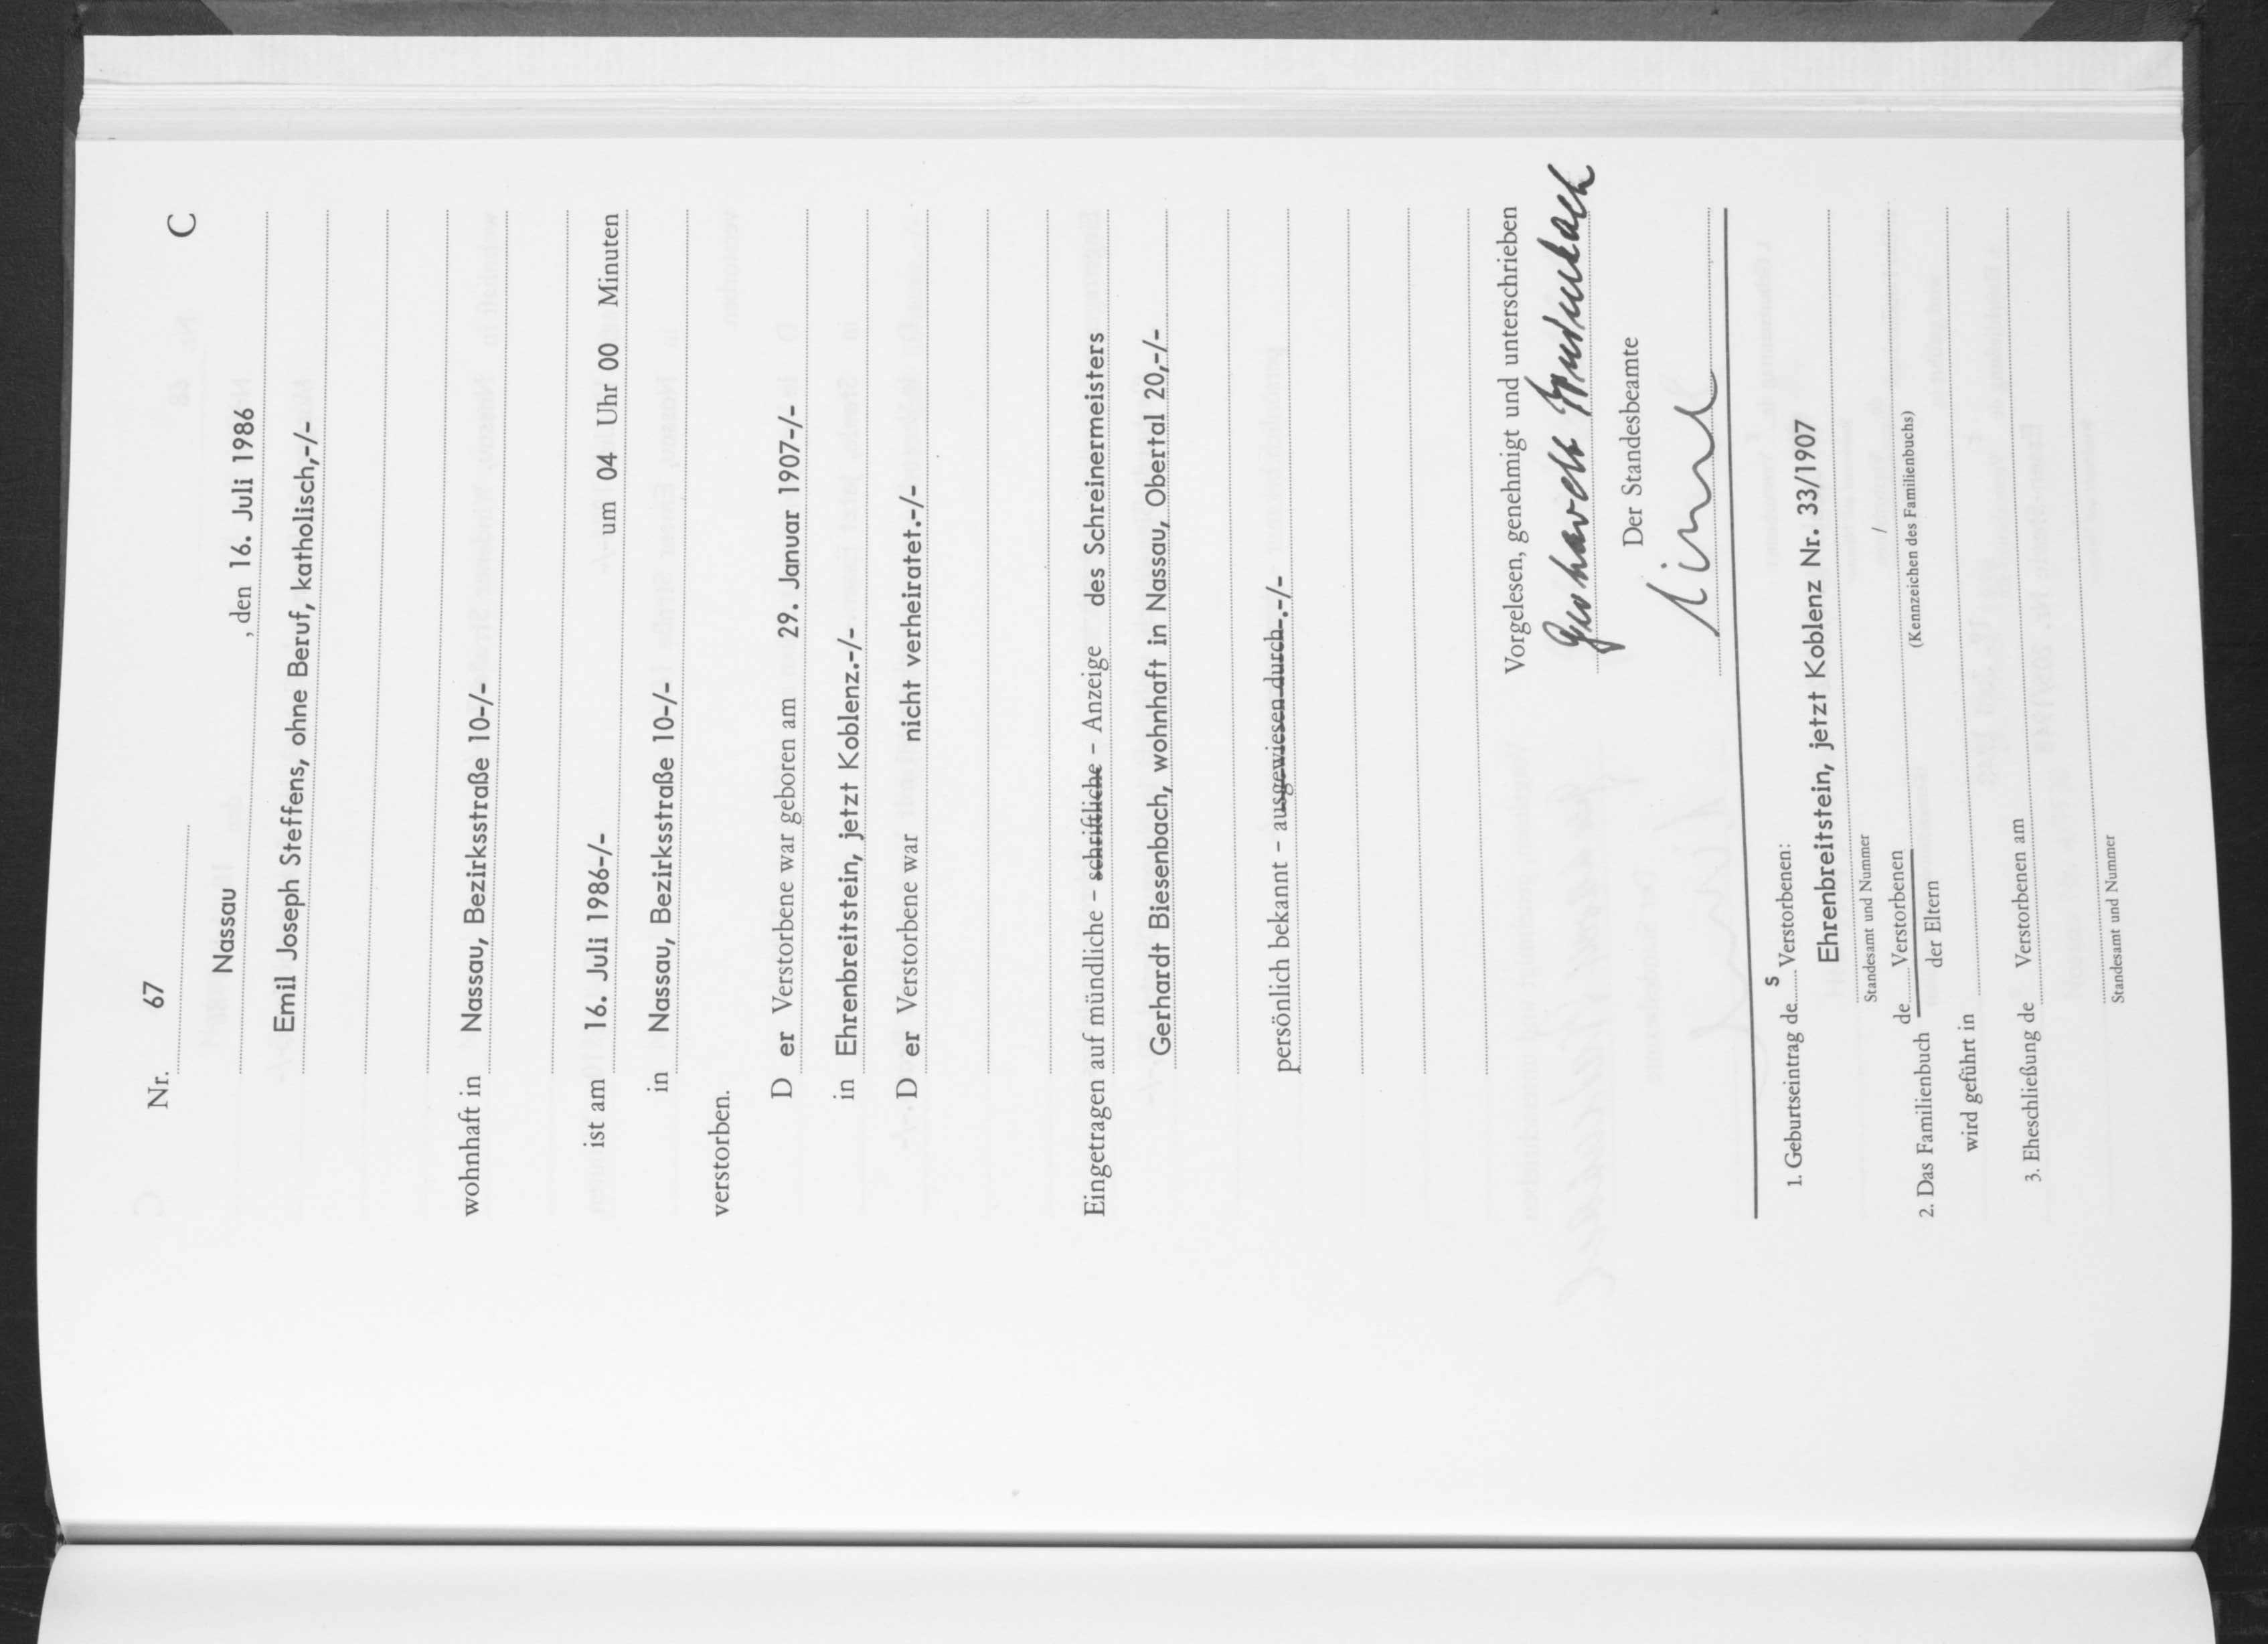 Nr. 67 C
Nassau, den 16. Juli 1986
Emil Joseph Steffens, ohne Beruf, katholisch,-/-
wohnhaft in Nassau, Bezirksstraße 10-/-
ist am 16. Juli 1986-/- um 04 Uhr 00 Minuten
in Nassau, Bezirksstraße 10-/-
verstorben.
D er Verstorbene war geboren am 29. Januar 1907-/-
in Ehrenbreitstein, jetzt Koblenz.-/-
D er Verstorbene war nicht verheiratet.-/-
Eingetragen auf mündliche – schriftliche – Anzeige des Schreinermeisters
Gerhardt Biesenbach, wohnhaft in Nassau, Obertal 20,-/-
persönlich bekannt – ausgewiesen durch-.-/-
Vorgelesen, genehmigt und unterschrieben
Gerhardt Biesenbach
Der Standesbeamte
1. Geburtseintrag des Verstorbenen:
Ehrenbreitstein, jetzt Koblenz Nr. 33/1907
Standesamt und Nummer
2. Das Familienbuch de Verstorbenen /
der Eltern (Kennzeichen des Familienbuchs)
wird geführt in
3. Eheschließung de Verstorbenen am
Standesamt und Nummer